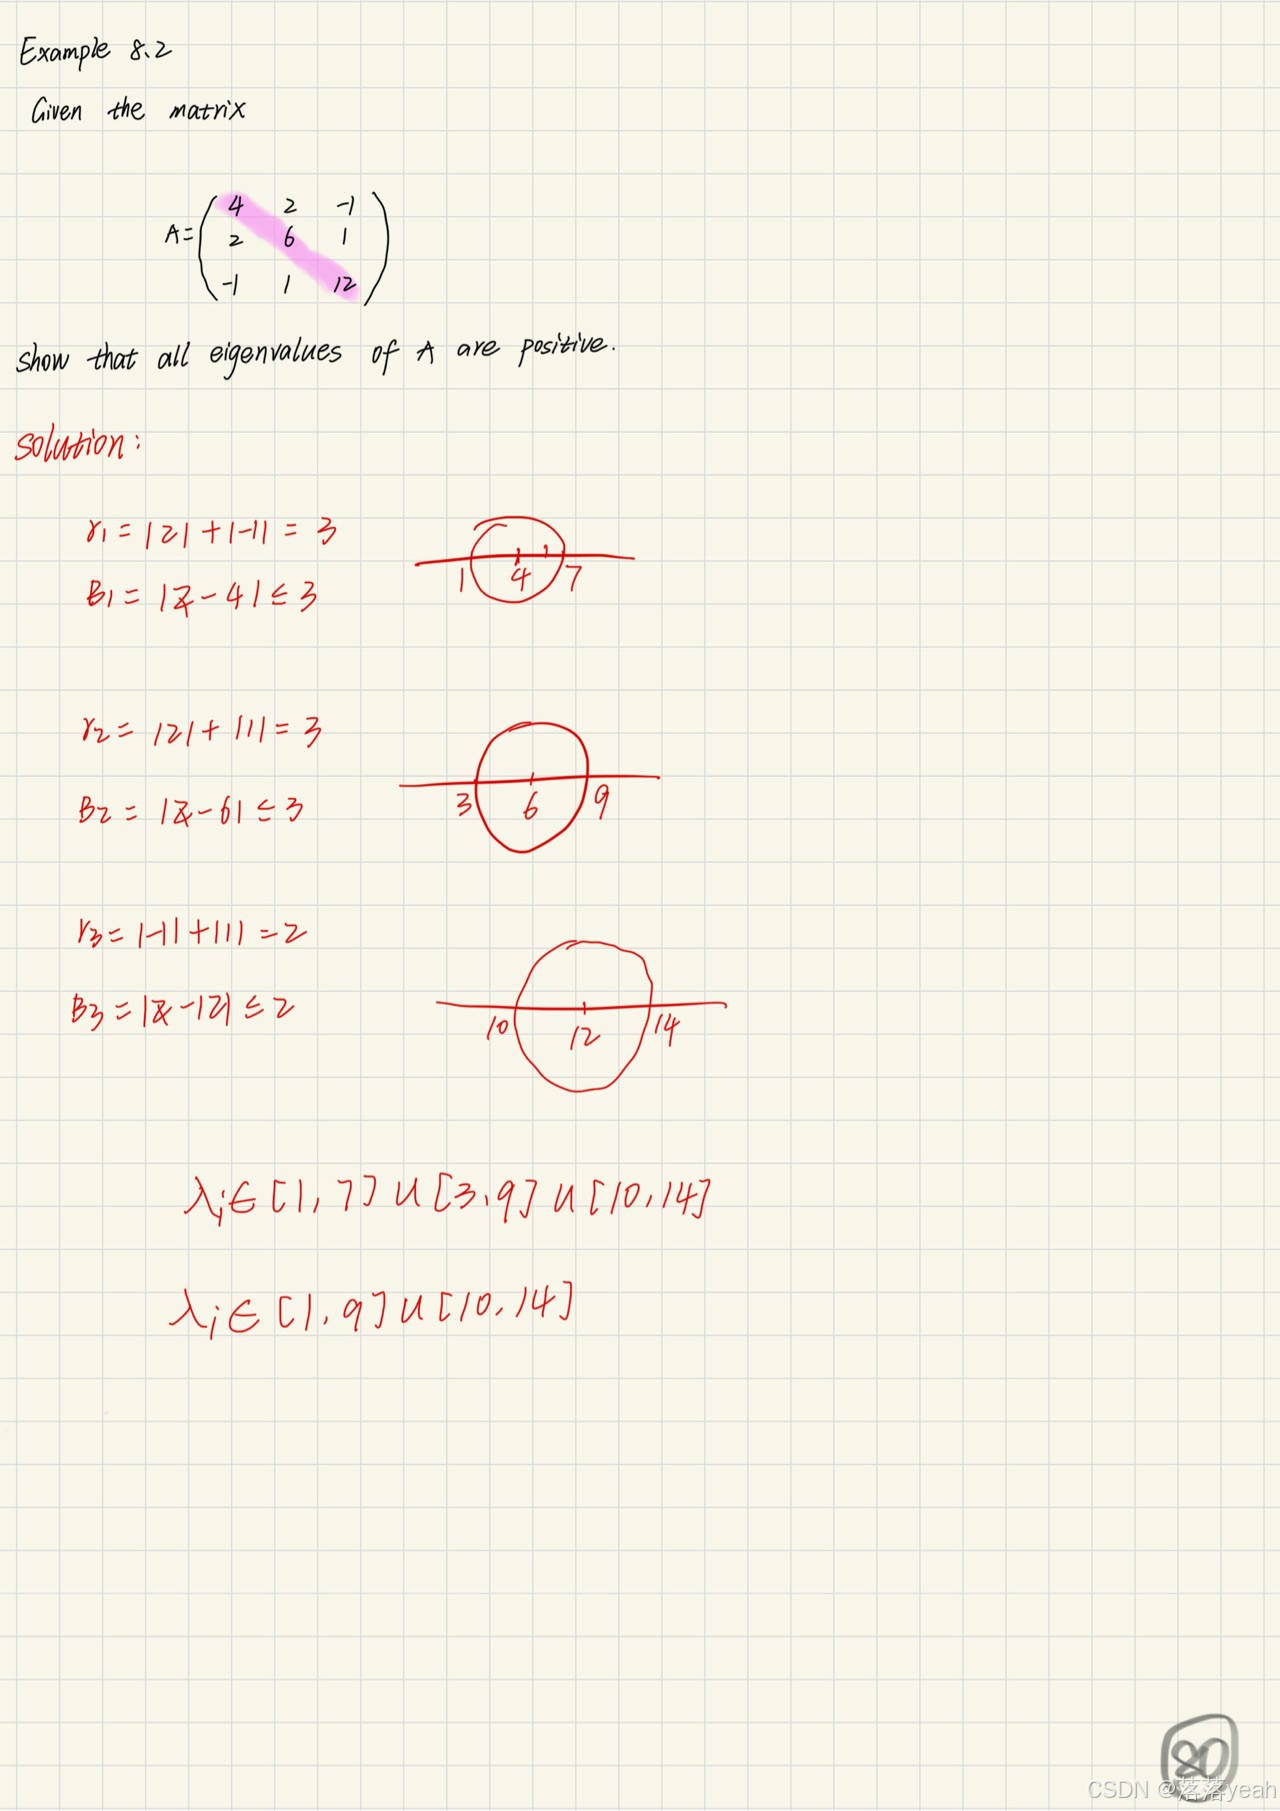 Example 8.2
Given the matrix
A=( 4 2 -1
2 6 1
-1 1 12 )
show that all eigenvalues of A are positive.
solution:
r1 = |2| + |-1| = 3
1 4 7
B1 = |z - 4| ≤ 3
r2 = |2| + |1| = 3
B2 = |z - 6| ≤ 3
3 6 9
r3 = |-1| + |1| = 2
B3 = |z - 12| ≤ 2
10 12 14
λi ∈ [1, 7] ∪ [3, 9] ∪ [10, 14]
λi ∈ [1, 9] ∪ [10, 14]
80
CSDN @落落yeah